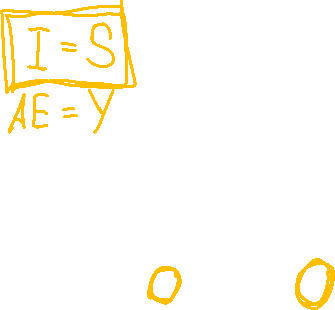 I = S
AE = Y
O O